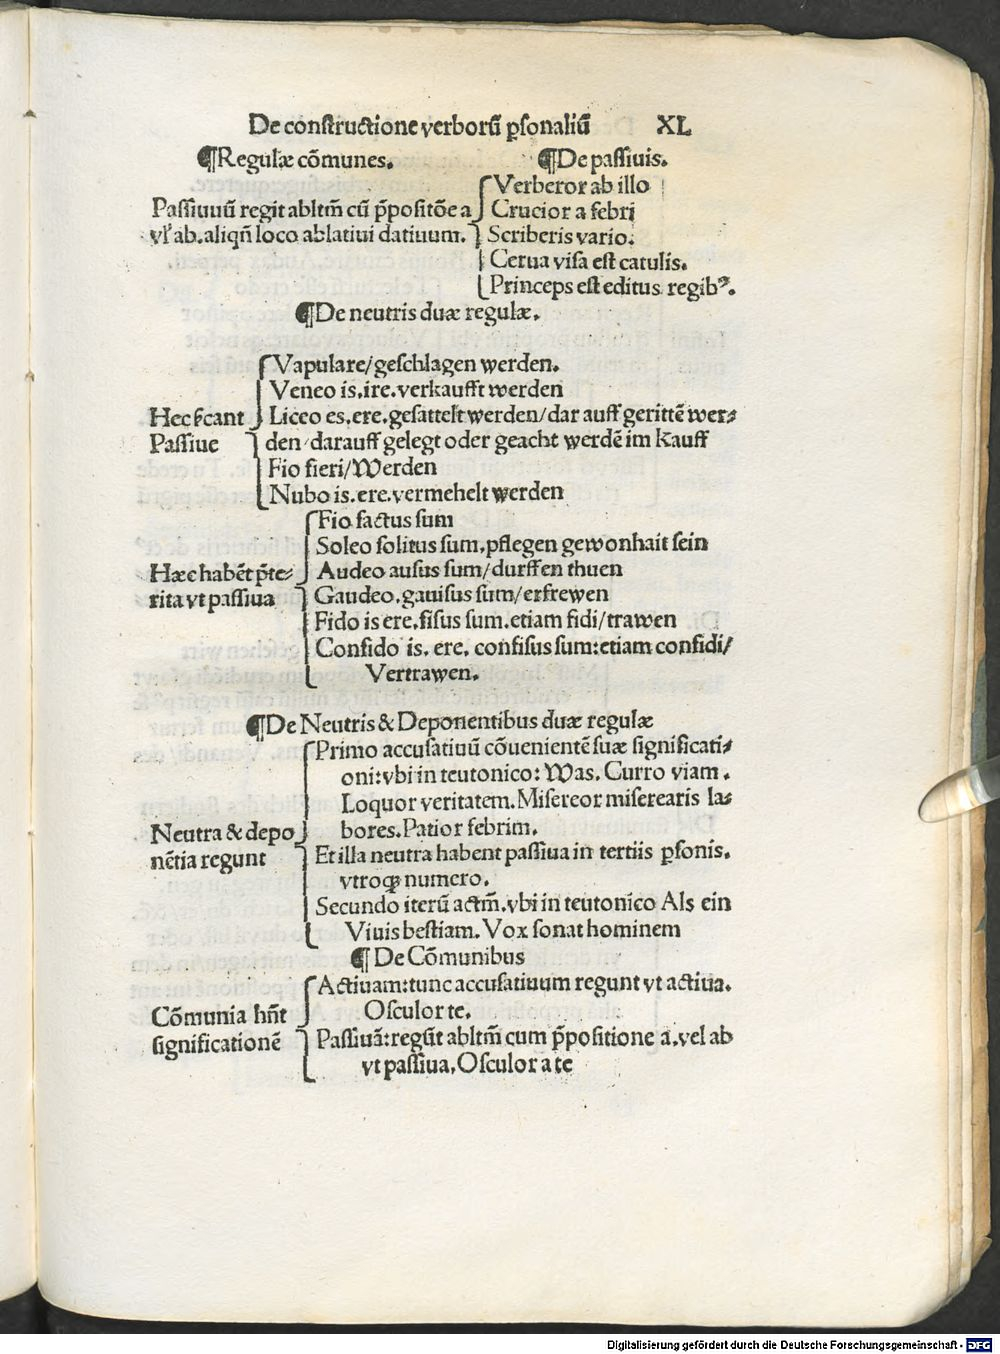 De constructione verborũ p̱sonaliũ XL
¶Regulæ cõmunes. ¶De passiuis.
Verberor ab illo
Passiuuũ regit abltm̃ cũ p̃positõe a Crucior a febri
vl' ab. aliqñ loco ablatiui datiuum. Scriberis vario.
Cerua visa est catulis.
Princeps est editus regibꝰ.
¶De neutris duæ regulæ.
Vapulare/geschlagen werden.
Veneo is.ire.verkaufft werden
Hec sc̃ant Liceo es.ere.gesattelt werden/dar auff gerittẽ wer⸗
Passiue den/darauff gelegt oder geacht werdẽ im Kauff
Fio fieri/Werden
Nubo is.ere.vermehelt werden
Fio factus sum
Soleo solitus sum.pflegen gewonhait sein
Hæc habẽt p̃te⸗ Audeo ausus sum/durffen thuen
rita vt passiua Gaudeo.gauisus sum/erfrewen
Fido is ere.fisus sum.etiam fidi/trawen
Confido is. ere. confisus sum:etiam confidi/
Vertrawen.
¶De Neutris & Deponentibus duæ regulæ
Primo accusatiuũ cõuenientẽ suæ significati⸗
oni:vbi in teutonico: Was. Curro viam.
Loquor veritatem. Misereor miserearis la⸗
Neutra & depo bores. Patior febrim.
nẽtia regunt Et illa neutra habent passiua in tertiis p̱sonis.
vtroqꝫ numero.
Secundo iterũ actm̃.vbi in teutonico Als ein
Viuis bestiam. Vox sonat hominem
¶ De Cõmunibus
Actiuam:tunc accusatiuum regunt vt actiua.
Cõmunia hñt Osculor te.
significationẽ Passiuã:regũt abltm̃ cum p̃positione a.vel ab
vt passiua.Osculor a te
Digitalisierung gefördert durch die Deutsche Forschungsgemeinschaft - DFG